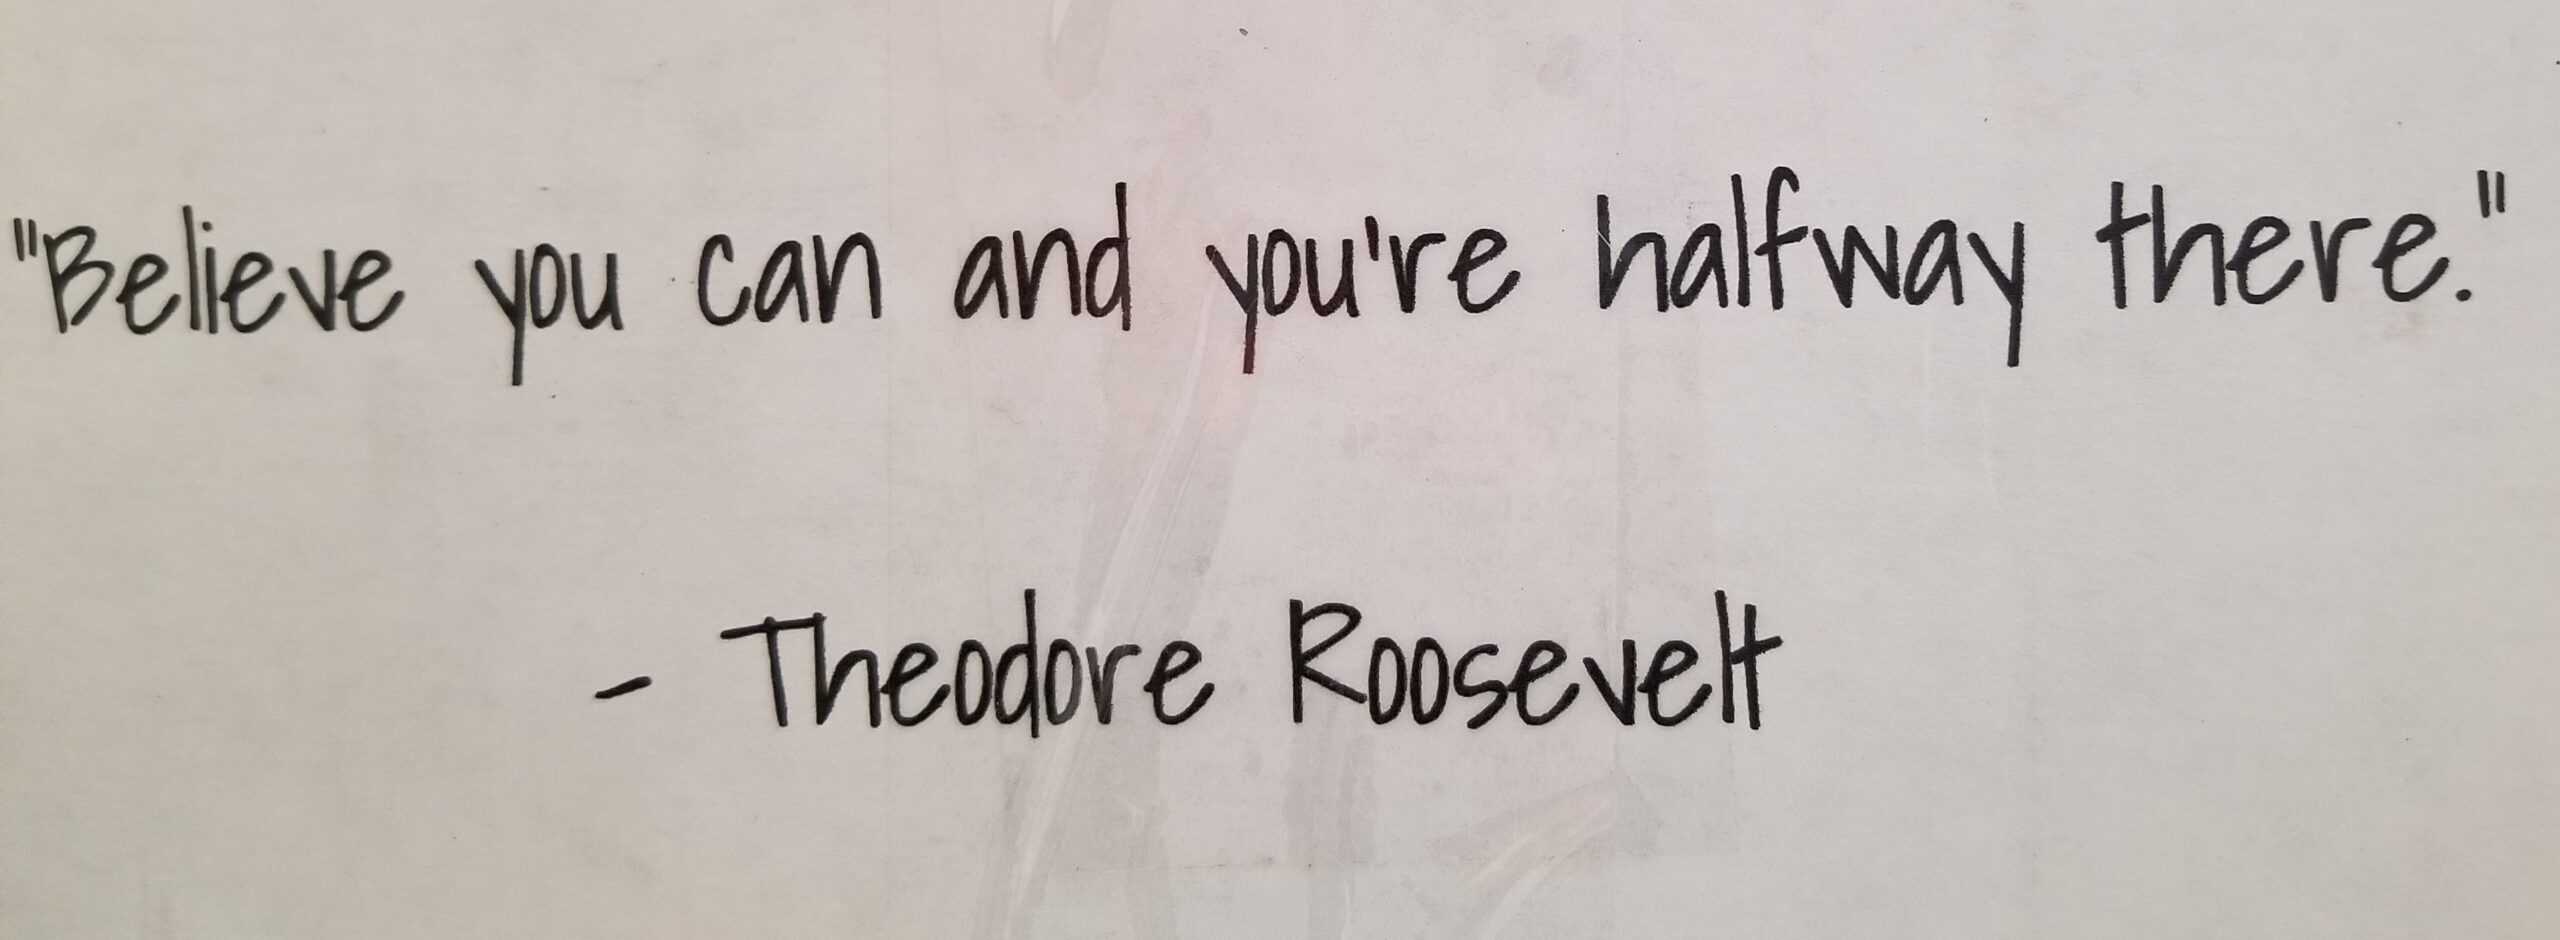 "Believe you can and you're halfway there."
- Theodore Roosevelt